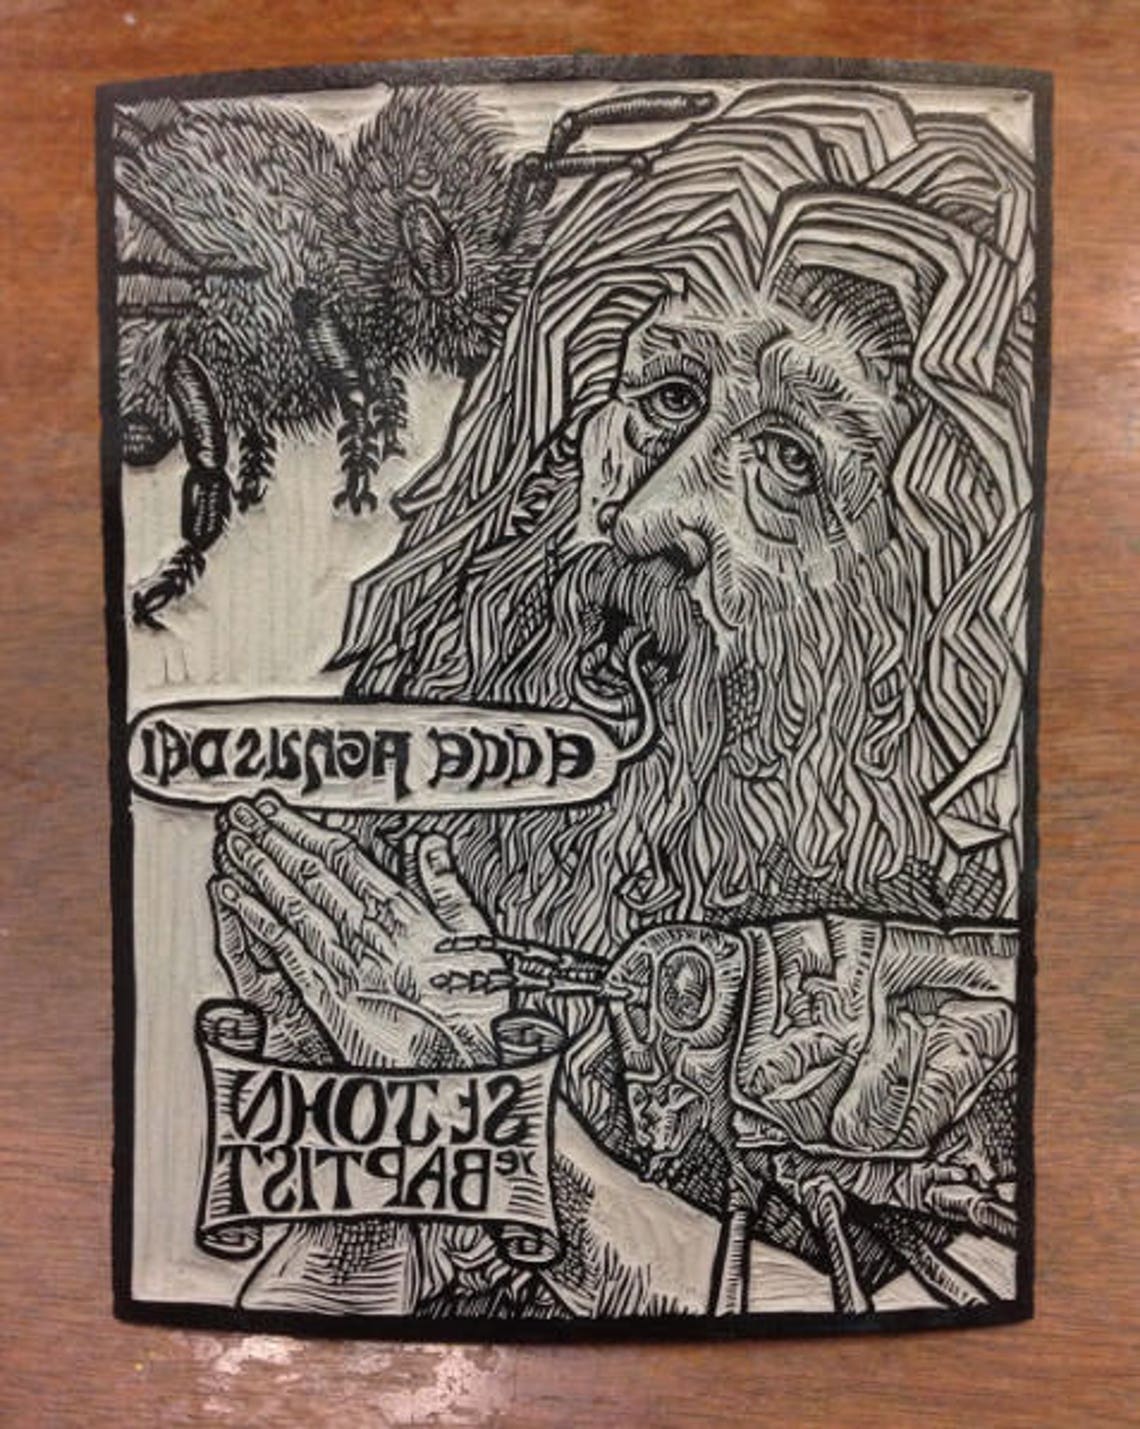 ecce AGNUS DEI
St. JOHN
ye BAPTIST